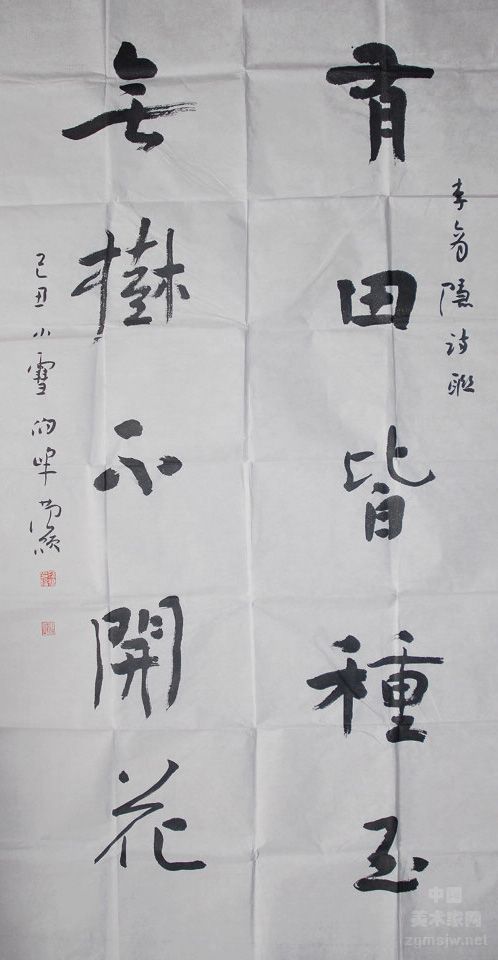 李商隱詩聯
有田皆種玉
無樹不開花
己丑小雪
中國
美术家网
zgmsjw.net